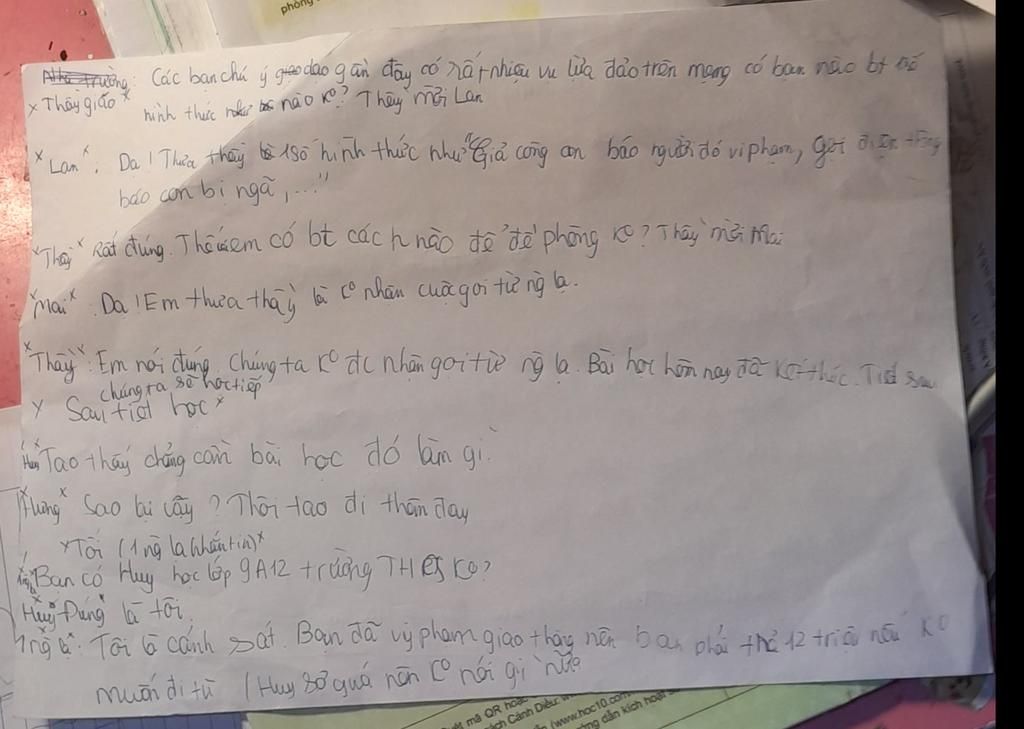 phòng
Nhà trường: Các bạn chú ý giao dạo gần đây có rất nhiều vụ lừa đảo trên mạng có bạn nào bt số
* Thầy giáo * hình thức như nào ko? Thầy mời Lan
* Lan *: Dạ! Thưa thầy là 1 số hình thức như "Giả công an báo người đó vi phạm, gọi điện thông
báo con bị ngã,..."
* Thầy * Rất đúng. Thế em có bt cách nào để đề phòng ko? Thầy mời Mai
* Mai * : Dạ! Em thưa thầy là ko nhận cuộc gọi từ ng lạ.
* Thầy *: Em nói đúng. Chúng ta ko đc nhận gọi từ ng lạ. Bài học hôm nay đã kết thúc. Tiết sau
chúng ta sẽ học tiếp
* Sau tiết học *
* Huy * Tao thấy chẳng cần bài học đó làm gì.
* Hưng * Sao lại vậy? Thôi tao đi thăn đay
* Tối (1 ng lạ nhắn tin) *
Bạn có Huy học lớp 9A12 trường THCS ko?
* Huy * Đúng là tôi,
1 ng lạ *: Tôi là cảnh sát. Bạn đã vy phạm giao thông nên bạn phải trả 12 triệu nếu ko
muốn đi tù (Huy sợ quá nên ko nói gì nữa
mã QR hoặc
ách Cánh Diều:
(www.hoc10.com
ớng dẫn kích hoạt